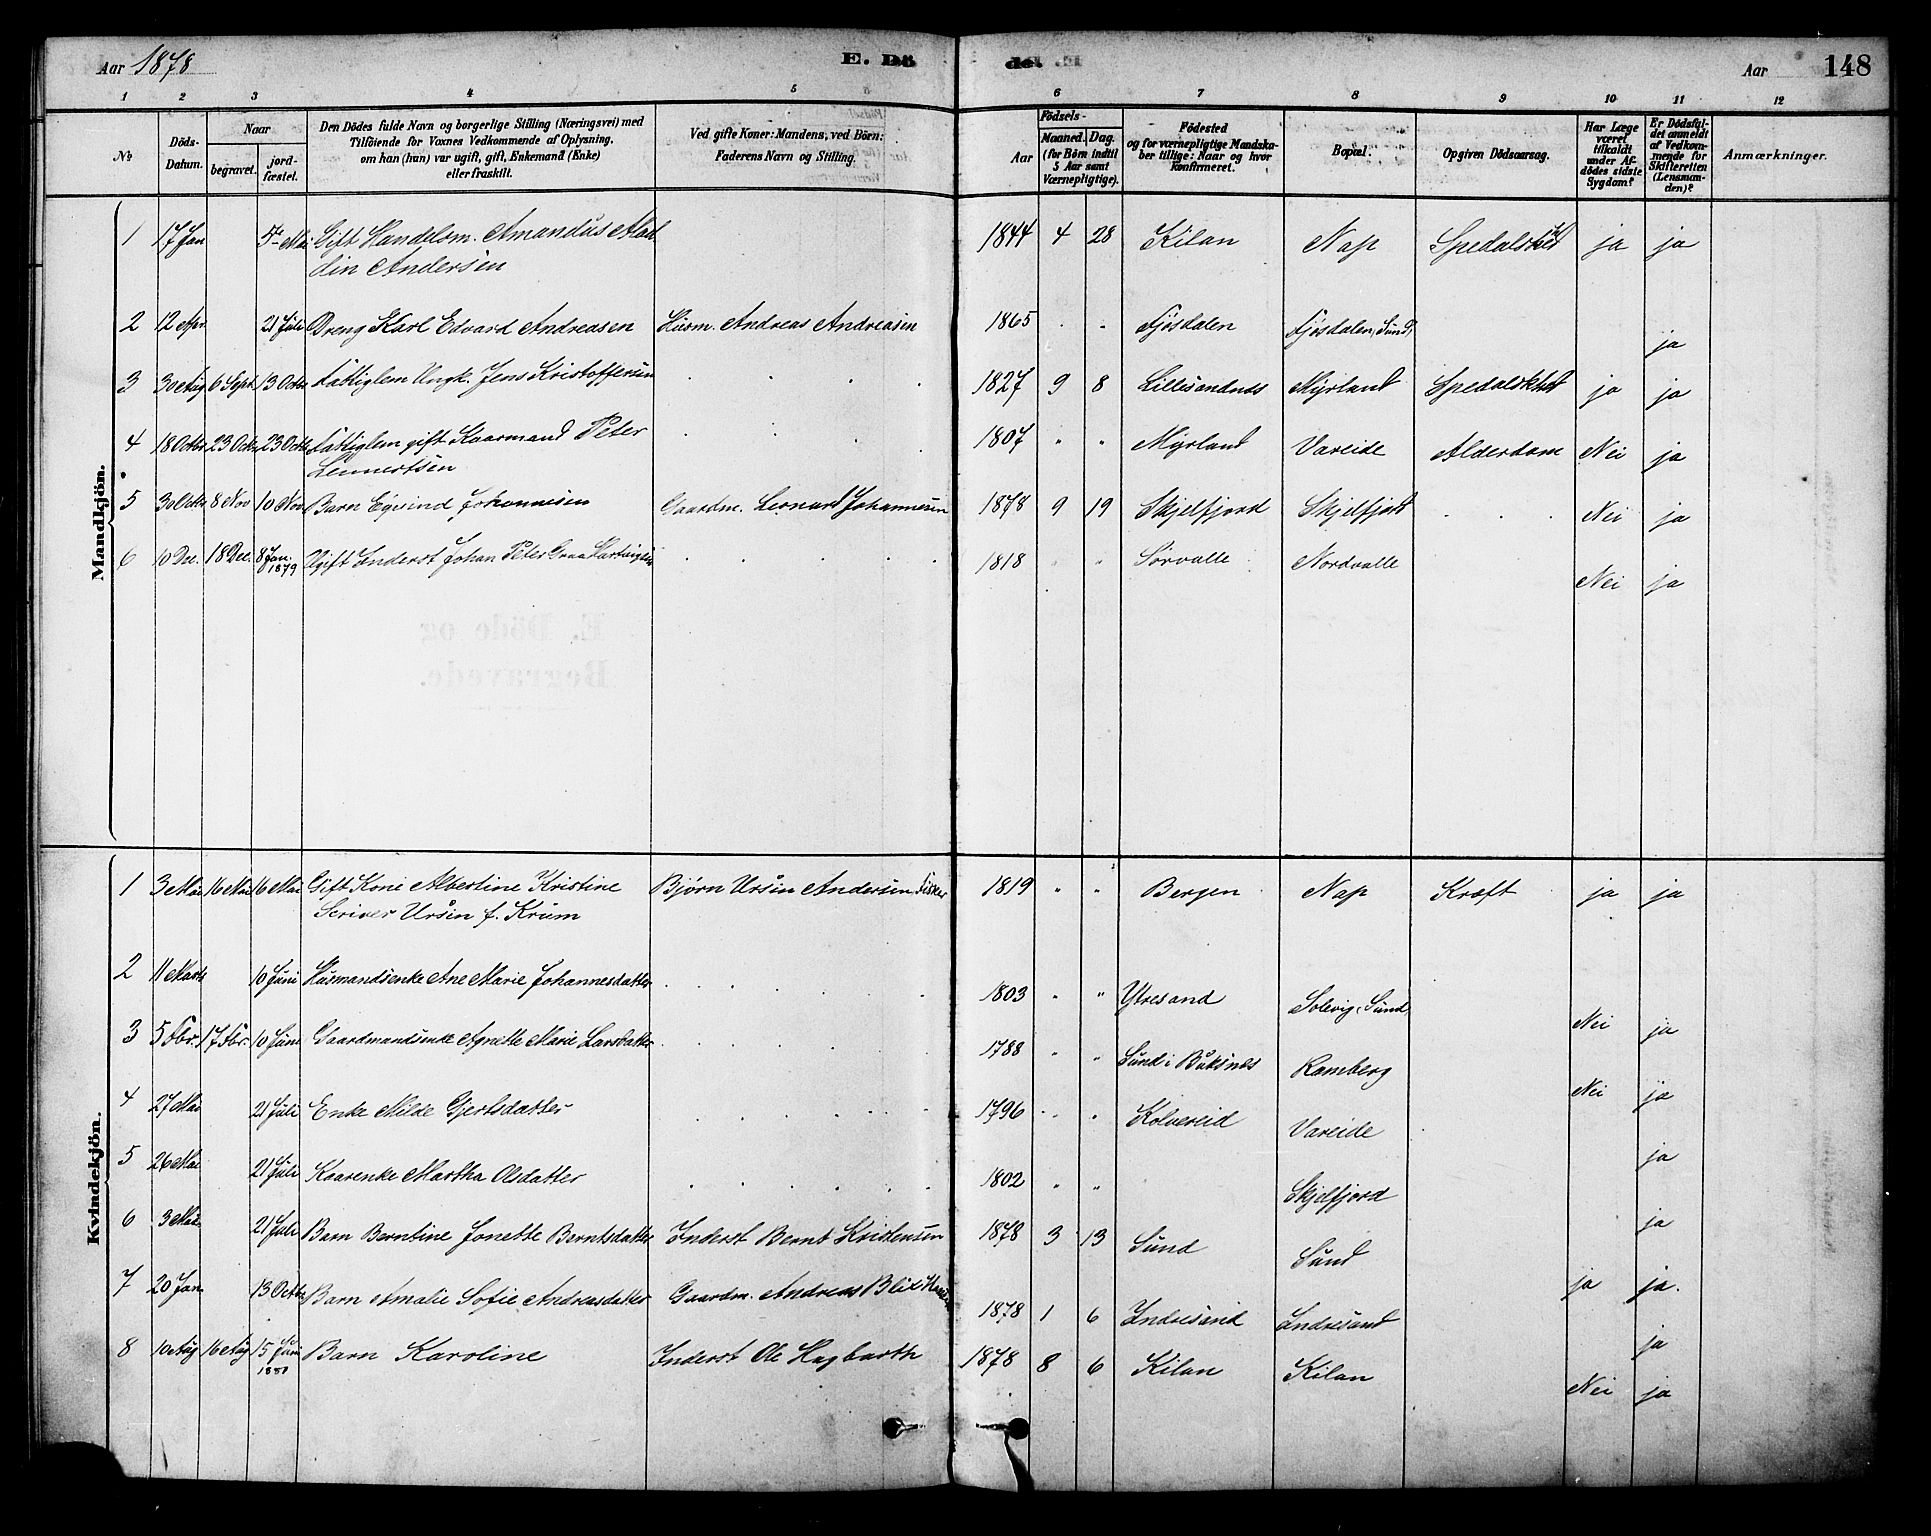 Aar 1878
E. Dö
de.
Aar
148
1 2 3 4 5 6 7 8 9 10 11 12
No
Döds-Datum.
Naar
begravet.
jord-fæstet.
Den Dödes fulde Navn og borgerlige Stilling (Næringsvei) med
Tilföiende for Voxnes Vedkommende af Oplysning,
om han (hun) var ugift, gift, Enkemand (Enke)
eller fraskilt.
Ved gifte Koner: Mandens, ved Börn:
Faderens Navn og Stilling.
Födsels-
Aar
Maaned. Dag.
(for Börn indtil
5 Aar samt
Værnepligtige).
Födested
og for værnepligtige Mandska-
ber tillige: Naar og hvor
Konfirmeret.
Bopæl.
Opgiven Dödsaarsag.
Har Læge
været
tilkaldt
under Af-
dödes sidste
Sygdom?
Er Dödsfal-
det anmeldt
af Vedkom-
mende for
Skifteretten
(Lensman-
den)?
Anmærkninger.
Mandkjön.
1 17 Jan 5te Mai Gift Handelsm. Amandus Alad 1844 4 28 Kilan Nap Spedalskhed ja ja
din Andersen
2 12 Apr. 21 Juli Dreng Karl Edvard Andreasen Husm. Andreas Andreasen 1865 . " Fjøsdalen Fjøsdalen, Sund, ja
3 30 Aug 6 Sept 13 Octbr Fattiglem Ungk. Jens Kristoffersen 1827 9 8 Lillesandnes Myrland Spedalskhed ja ja
4 18 Octbr 23 Octbr 23 Octbr Fattiglem gift Kaarmand Peter 1807 " " Myrland Vareide Alderdom Nei ja
Lennertsen
5 30 Octbr 8 Nov 10 Nov Barn Eyvind Johannesen Gaardm. Leonard Johannesen 1878 9 19 Skjelfjord Skjelfjord Nei ja
6 10 Dec. 18 Dec. 8 Jan. 1879 Ugift Inderst Johan Peter Graa Hartvigsen 1818 " " Sørvalle Nordvalle Nei ja
Kvindekjön.
1 3 Mai 16 Mai 16 Mai Gift Kone Albertine Kristine Bjørn Ursin Andersen, Fisker 1819 " " Bergen Nap Kræft ja ja
Scriver Ursin f. Krum
2 11 Marts 10 Juni Husmandsenke Ane Marie Johannesdatter 1803 " " Ytresand Solevig, Sund Nei ja
3 5 Fbr. 17 Fbr. 10 Juni Gaardmandsenke Agnette Marie Larsdatter 1788 " " Sund i Buksnes Ramberg Nei ja
4 27 Mai 21 Juli Enke Milde Gjertsdatter 1796 " " Kolvereid Vareide ja
5 26 Mai 21 Juli Kaarenke Martha Olsdatter 1802 " " Skjelfjord ja
6 3 Mai 21 Juli Barn Berntine Jonette Berntsdatter Inderst Bernt Kristensen 1878 3 13 Sund Sund ja ja.
7 20 Jan 13 Octbr Barn Amalie Sofie Andreasdatter Gaardm. Andreas Blix 1878 1 6 Indresand Indresand ja
8 10 Aug 16 Aug 15 Juni Barn Karoline Inderst Ole Hagbarth 1878 8 6 Kilan Kilan Nei ja